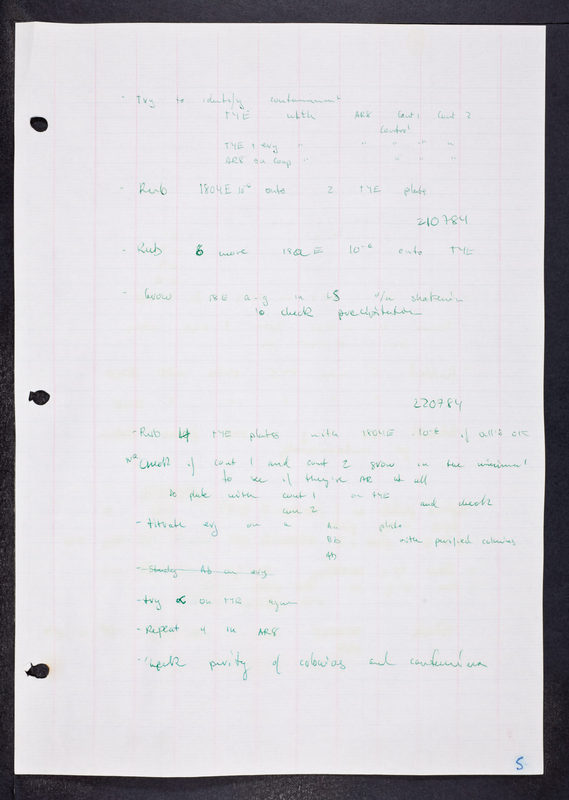 - Try to identify contaminant
TYE with AR8 Cont 1 Cont 2
Control
TYE + ery " " " " "
AR8 on comp " " " "
- Rub 1804E 10⁻⁶ onto 2 TYE plate
210784
- Rub 6 more 1804E 10⁻⁶ onto TYE
- Grow 18E a-g in LS o/n shaken
to check precipitation
220784
- Rub 4 TYE plates with 1804E 10⁻⁶ if all's OK
Check if cont 1 and cont 2 grow in the minimal
to see if they're AR at all
So plate with cont 1 on TYE and check
cont 2
- titrate ery on a Aa plate
Bb with purified colonies
Ab
- Study Ab on ery
- try α on TYE again
- Repeat 4 in AR8
- Check purity of colonies and
5